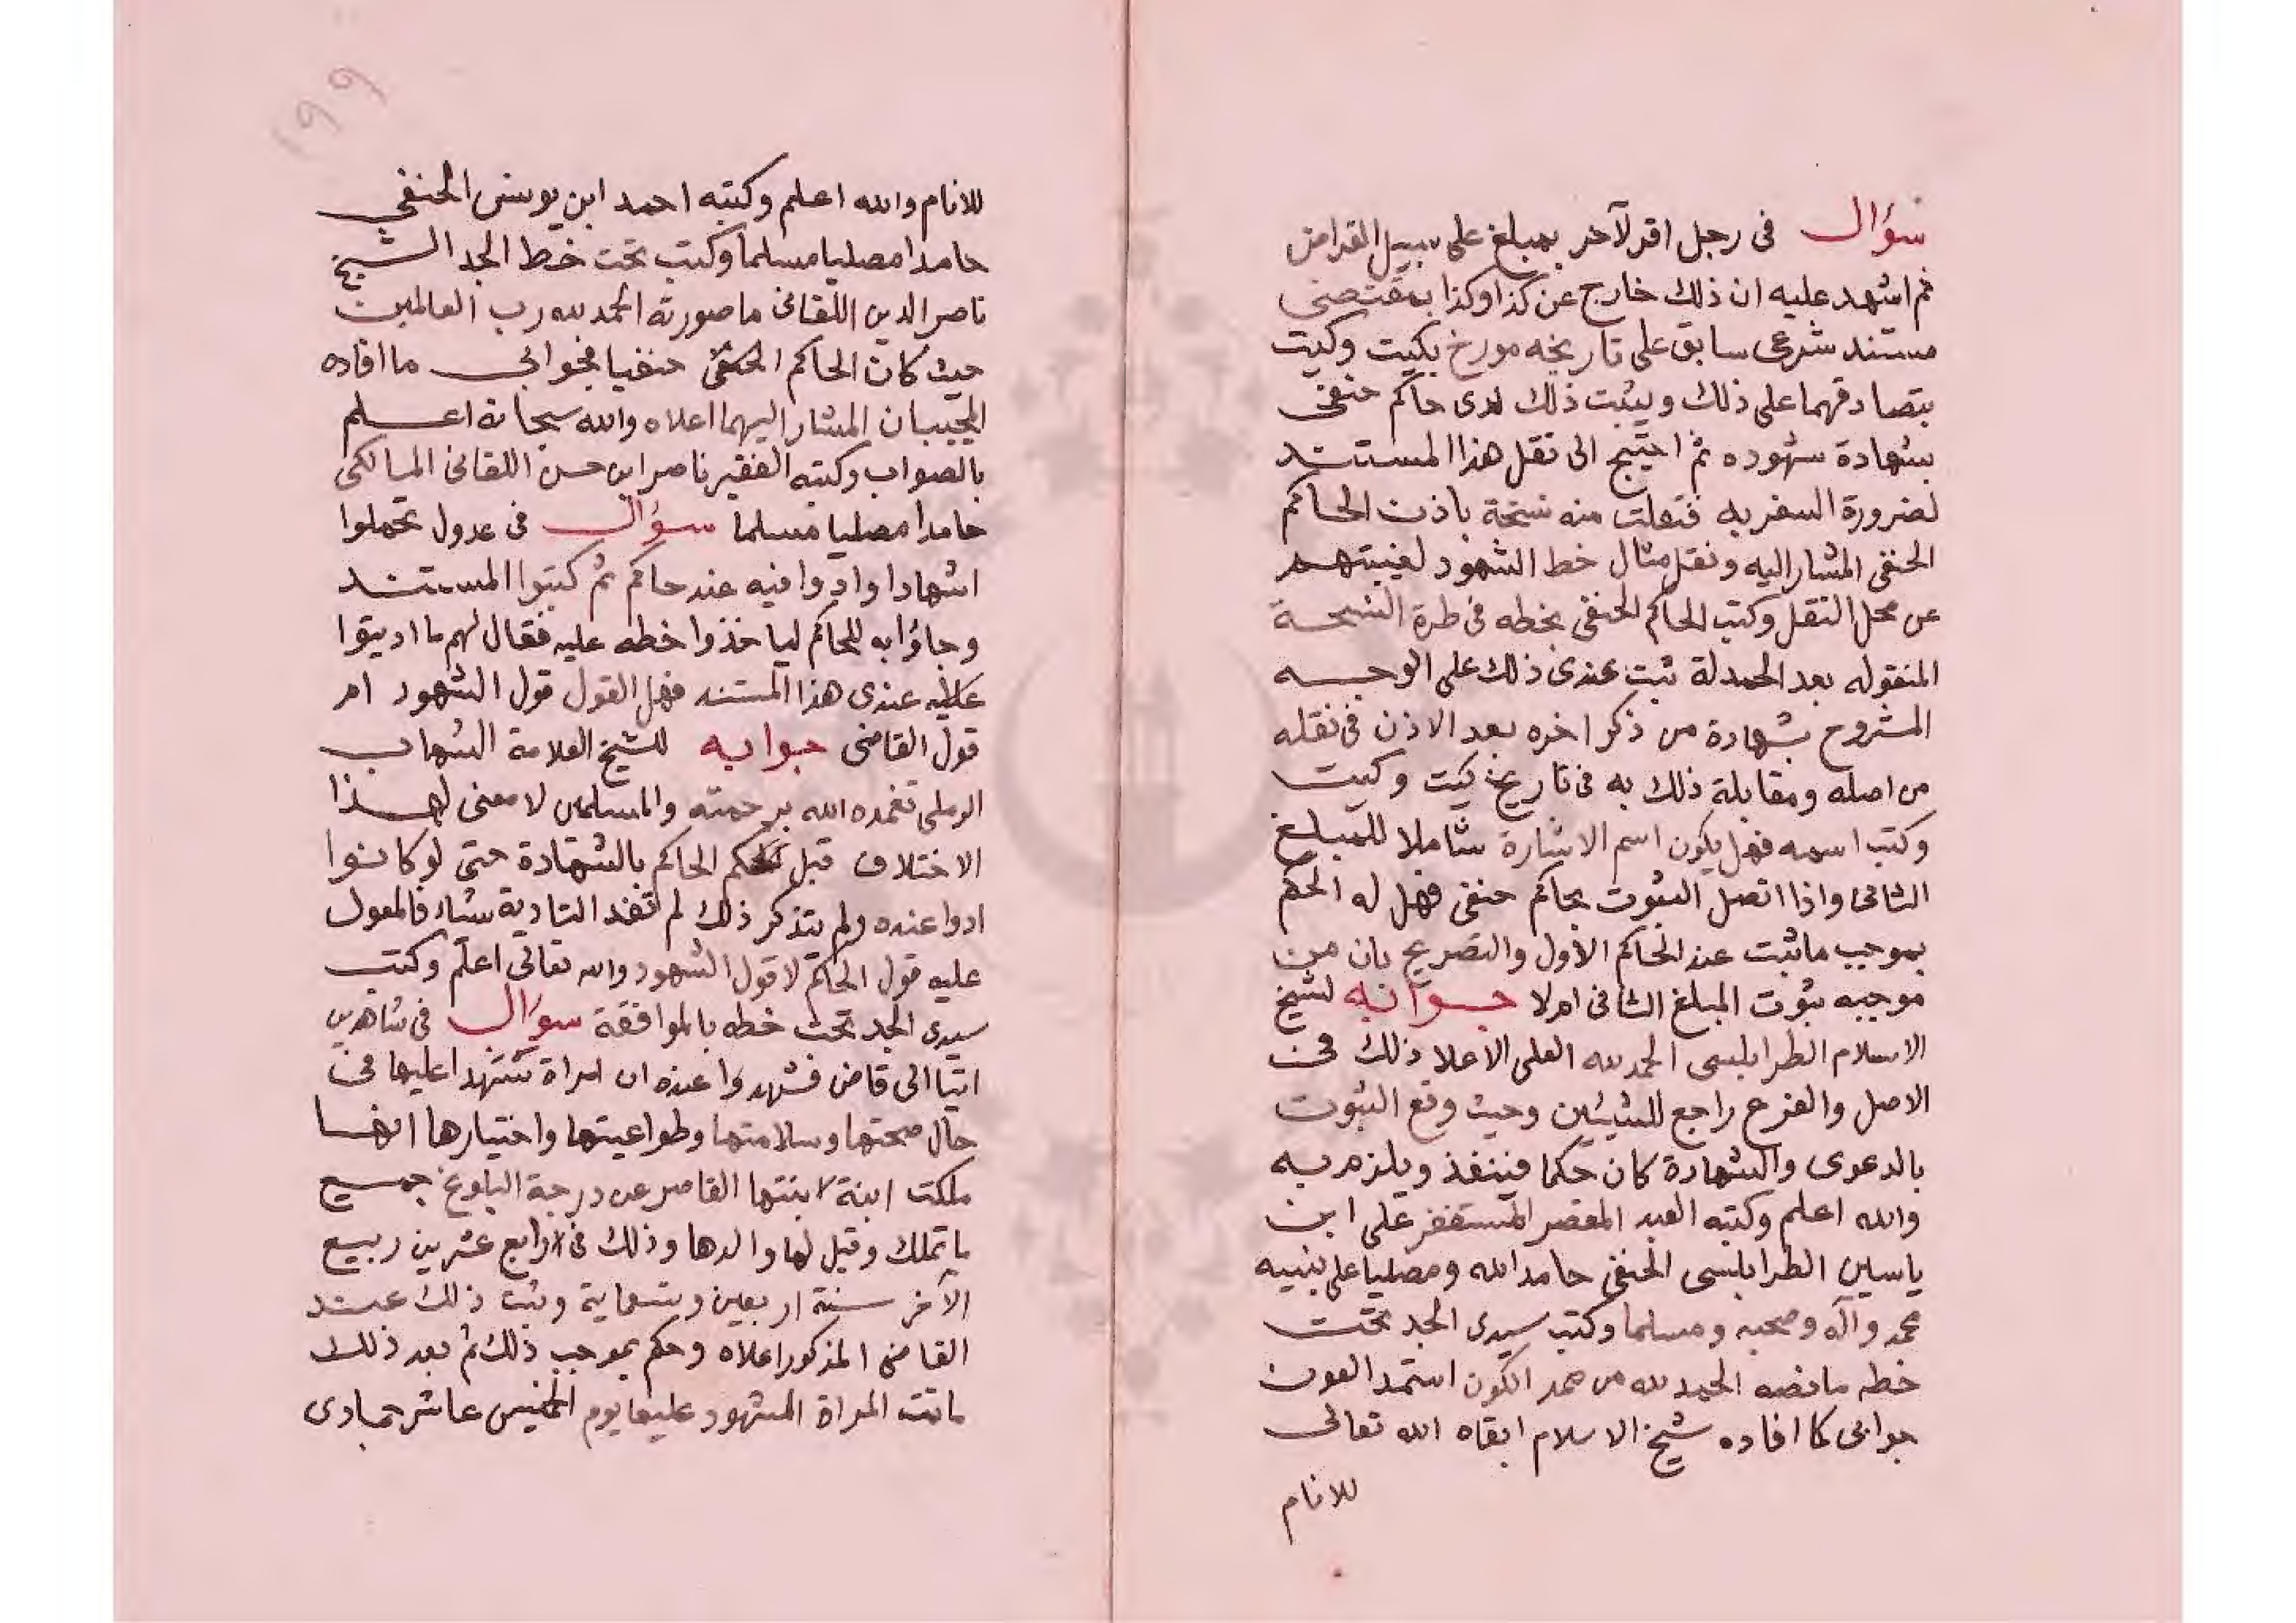 سؤال فى رجل اقر لآخر بمبلغ على سبيل القراض
ثم اشهد عليه ان ذلك خارج عن كذا وكذا بمقتضى
مستند شرعى سابق على تاريخه مورخ بكيت وكيت
بتصادقهما على ذلك ويثبت ذلك لدى حاكم حنفى
بشهادة شهوده ثم احتيج الى نقل هذا المستند
لضرورة السفر به فنقلت منه نسخة باذن الحاكم
الحنفى المشار اليه ونقل مثال خط الشهود لغيبتهم
عن محل النقل وكتب الحاكم الحنفى بخطه فى طرة النسخة
المنقوله بعد الحمدلة ثبت عندى ذلك على الوجه
المشروح بشهادة من ذكر اخره بعد الاذن فى نقله
من اصله ومقابلة ذلك به فى تاريخ كيت وكيت
وكتب اسمه فهل يكون اسم الاشارة شاملا للمبلغ
الثانى واذا اتصل الثبوت بحاكم حنفى فهل له الحكم
بموجب ما ثبت عند الحاكم الأول والتصريح بان من
موجبه ثبوت المبلغ الثانى ام لا جوابه لشيخ
الاسلام الطرابلسى الحمد لله العلى الاعلا ذلك فى
الاصل والفرع راجع للشيئين وحيث وقع الثبوت
بالدعوى والشهادة كان حكما فينفذ ويلزم به
والله اعلم وكتبه العبد المقصر المستغفر على ابن
ياسين الطرابلسى الحنفى حامد الله ومصليا على نبيه
محمد وآله وصحبه ومسلما وكتب سيدى الجد تحت
خطه ما نصه الحمد لله من ممد الكون استمد العون
جوابى كما افاده شيخ الاسلام ابقاه الله تعالى
للانام
١٩٩
للانام والله اعلم وكتبه احمد ابن يونس الحنفي
حامدا مصليا مسلما وكتب تحت خط الجد الشيخ
ناصر الدين اللقانى ما صورته الحمد لله رب العالمين
حيث كان الحاكم حنفيا فجوابى ما افاده
المجيبان المشار اليهما اعلاه والله سبحانه اعلم
بالصواب وكتبه الفقير ناصر ابن حسن اللقانى المالكى
حامدا مصليا مسلما سؤال فى عدول تحملوا
اشهادا وادوا فيه عند حاكم ثم كتبوا المستند
وجاؤا به للحاكم لياخذوا خطه عليه فقال لهم ما اديتوا
عندى هذا المستند فهل القول قول الشهود ام
قول القاضى جوابه للشيخ العلامة الشهاب
الرملى تغمده الله برحمته والمسلمين لا معنى لهذا
الاختلاف قبل حكم الحاكم بالشهادة حتى لو كانوا
ادوا عنده ولم يتذكر ذلك لم تفد التادية شياء فالمعول
عليه قول الحاكم لا قول الشهود والله تعالى اعلم وكتب
سيدى الجد تحت خطه بالموافقة سوال فى شاهدين
اتيا الى قاض فشهدوا عنده ان امراة شهدا عليها فى
حال صحتها وسلامتها وطواعيتها واختيارها انها
ملكت ابنة لابنتها القاصر عن درجة البلوغ جميع
ما تملك وقبل لها والدها وذلك فى رابع عشرين ربيع
الآخر سنة اربعين وتسعماية وثبت ذلك عند
القاضى المذكور اعلاه وحكم بموجب ذلك ثم بعد ذلك
ماتت المراة المشهود عليها يوم الخميس عاشر جمادى